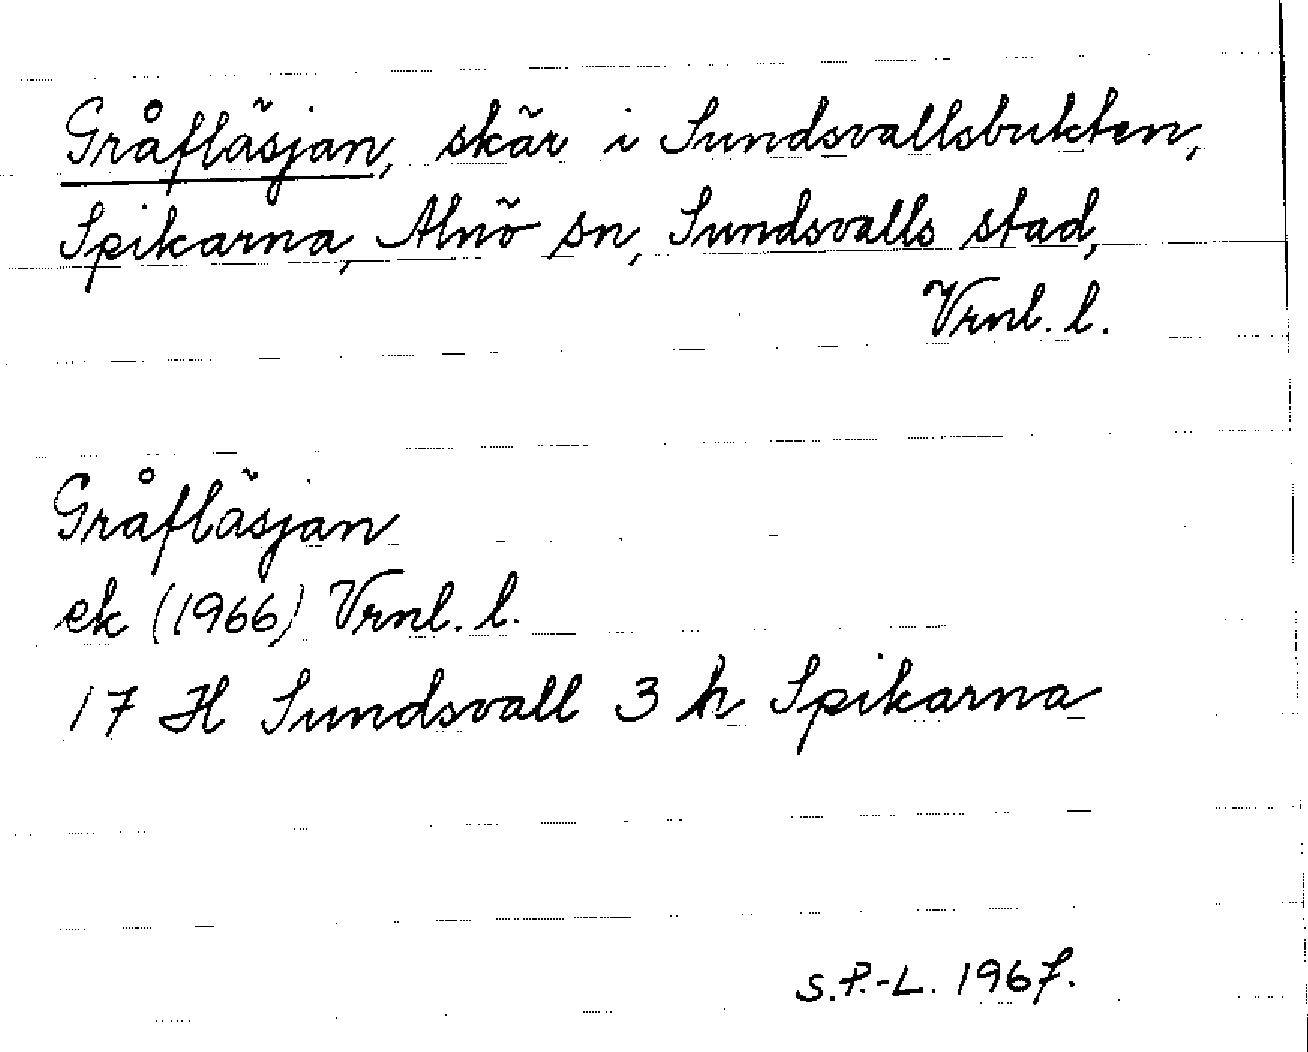 Gråfläsjan, skär i Sundsvallsbukten,
Spikarna, Alnö sn, Sundsvalls stad,
Vrnl. l.
Gråfläsjan
ek (1966) Vrnl. l.
17 H Sundsvall 3 h Spikarna
S.P.-L. 1967.